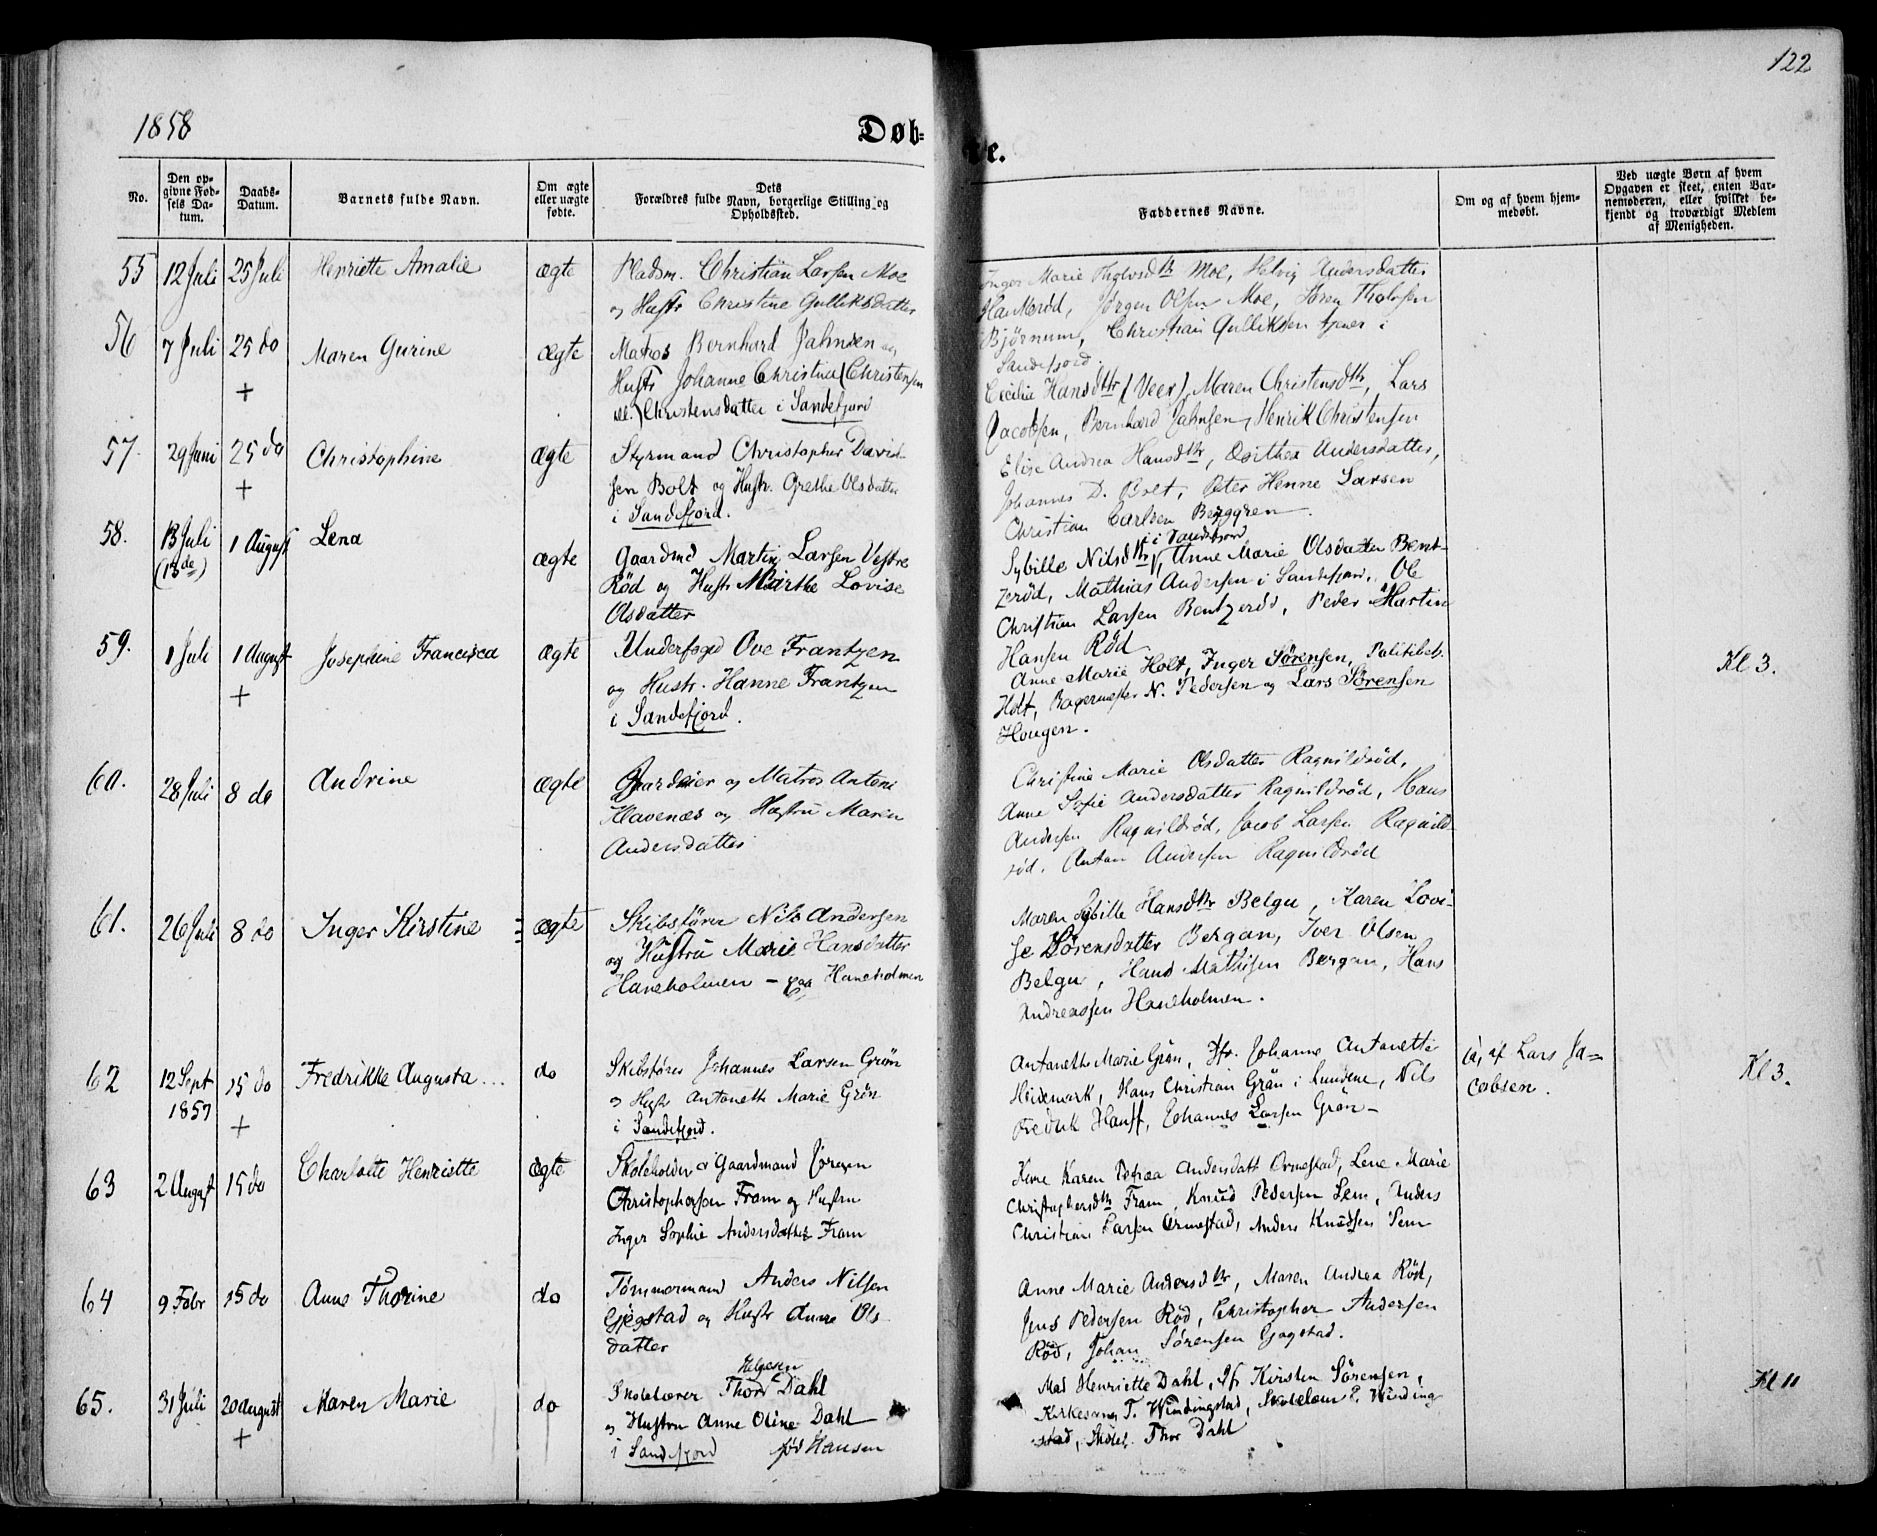 122
1858
Døb-
te.
No.
Den op-
givne Fød-
sels Da-
tum.
Daabs-
Datum.
Barnets fulde Navn.
Om ægte
eller uægte
fødte.
Dets
Forældres fulde Navn, borgerlige Stilling og
Opholdssted.
Faddernes Navne.
Om og af hvem hjem-
medøbt.
Ved uægte Børn af hvem
Opgaven er skeet, enten Bar-
nemoderen, eller hvilket be-
kjendt og troværdigt Medlem
af Menigheden.
55 12 Juli 25 Juli Henriette Amalie ægte
Pladsm. Christian Larsen Moe
og Hustr Christine Gulliksdatter
Inger Marie Moe, Helvig Andersdatter
Jørgen Olsen Moe, Søren
Bjørnum, Christian Gulliksen tjener i
Sandefjord.
56 7 Juli 25 do Maren Gurine ægte
+
Matros Bernhard Jahnsen og
Hustr Johanne Christine (Christensen
ell.) Christensdatter i Sandefjord
Cecilie Hansdttr (Veer), Maren Christensdttr, Lars
Jacobsen, Bernhard Jahnsen, Henrik Christensen
57. 29 Juni 25 do Christophine ægte
+
Styrmand Christopher David-
sen Bolt og Hustr. Grethe Olsdatter
i Sandefjord.
Elise Andrea Hansdttr, Andersdatter,
Johannes D. Bolt, Peter Henne Larsen
Christian Carlsen Berggren.
58. 13 Juli 1 August Lena ægte
(13de)
Gaardmd Martin Larsen Vestre
Rød og Hustr Marthe Lovise
Olsdatter
i Sandefjord
Sybille Nilsdttr, Anne Marie Olsdatter Bent-
zerød, Mathias Andersen i Sandefjord, Ole
Christian Larsen Bentzerød, Peder Martin
Hansen Rød
59. 1 Juli 1 August Josephine Francisca ægte
+
Underfoged Ove Frantzen
og Hustr. Hanne Frantzen
i Sandefjord.
Anne Marie Holt, Inger Sørensen, Politibet.
Holt, Bagermester N. Pedersen og Lars Sørensen
Hougen.
Kl 3.
60. 28 Juli 8 do Andrine ægte
Gaardeier og Matros Anton
Klavenæs og Hustru Maren
Andersdatter
Christine Marie Olsdatter Ragnildrød,
Anne Sofie Andersdatter Ragnildrød, Hans
Andersen Ragnildrød, Jacob Larsen Ragnild-
rød, Anton Andersen Ragnildrød
61. 26 Juli 8 do Inger Kirstine ægte
Skibsfører Nils Andersen
og Hustru Marie Hansdatter
Haneholmen - paa Haneholmen
Maren Sybille Hansdttr Belgu, Karen Lovi-
se Sørensdatter Bergan, Iver Olsen
Belgu, Hans Mathisen Bergan, Hans
Andreassen Haneholmen.
62 12 Sept 15 do Fredrikke Augusta ... do
1857 +
Skibsfører Johannes Larsen Grøn
og Hustr Antonette Marie Grøn
i Sandefjord.
Antonette Marie Grøn, Jfr. Johanne Antonette
Heidemark, Hans Christian Grøn i Lundene, Nils
Fredrik Hauff, Johannes Larsen Grøn -
Ja, af Lars Ja-
cobsen.
Kl 3.
63 2 August 15 do Charlotte Henriette ægte
Skoleholder & Gaardmand Jørgen
Christophersen Fram og Hustru
Inger Sophie Andersdatter Fram
Karen Petrea Andersdatt Ormestad, Lene Marie
Christophersdttr Fram, Knud Pedersen Sem, Anders
Christian Larsen Ormestad, Anders Knudsen Sem
64 9 Febr 15 do Anne Thorine do
Tømmermand Anders Nilsen
Gjøgstad og Hustr Anne Ols-
datter
Anne Marie Andersdttr, Maren Andrea Rød,
Jens Pedersen Rød, Christopher Andersen
Rød, Johan Sørensen Gjøgstad.
65. 31 Juli 20 August Maren Marie do
+
Helgesen
Skolelærer Thor Dahl
og Hustru Anne Oline Dahl
i Sandefjord fød Hansen
Mad Henriette Dahl, Jfr Kirsten Sørensen,
Kirkesang. T. Windingstad, Skolelær E. Winding
stad, Skolel. Thor Dahl
Kl 11